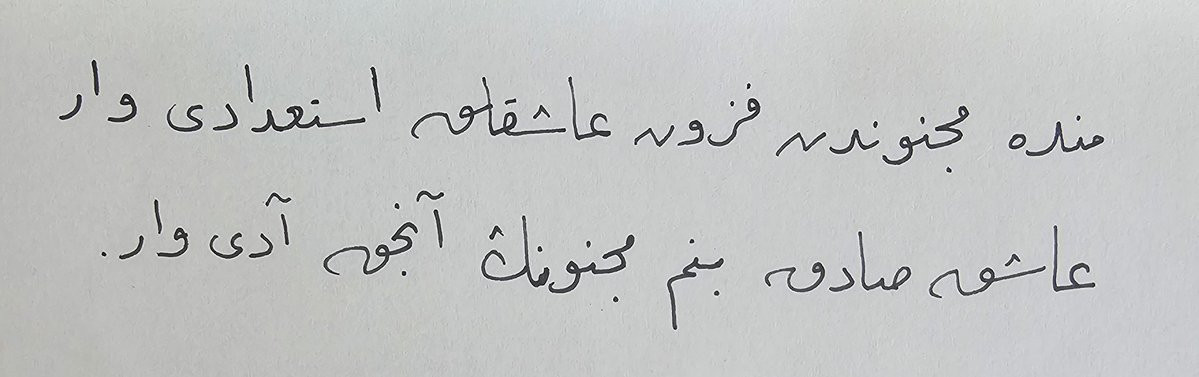 منده مجنوندن فزون عاشقلق استعدادی وار
عاشق صادق بنم مجنونڭ آنجق آدی وار.